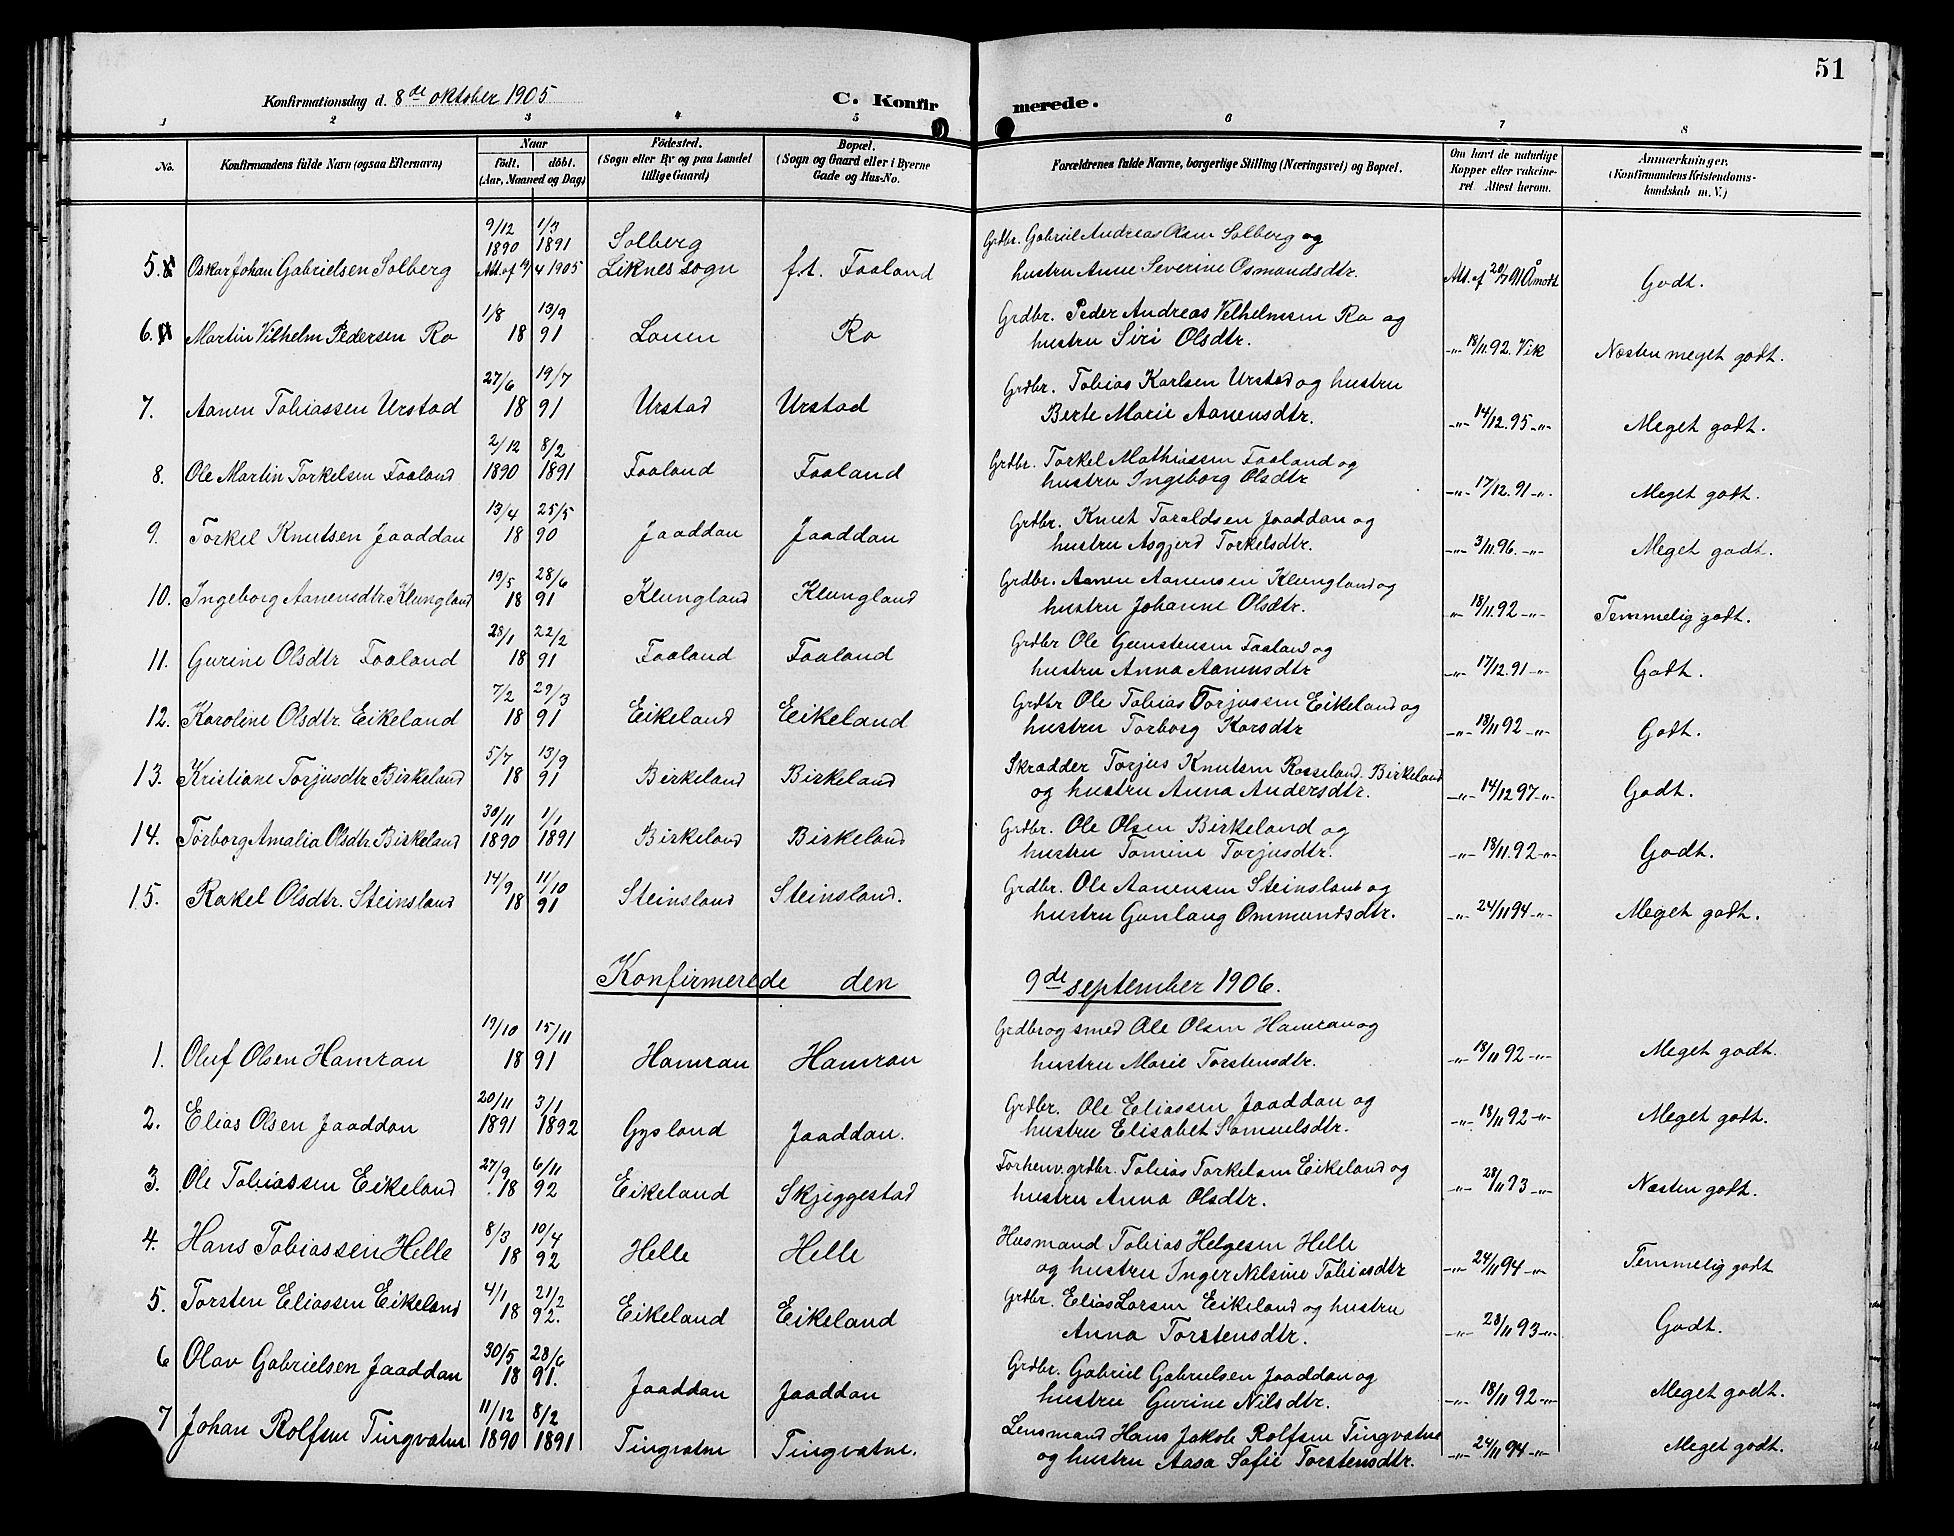 51
Konfirmationsdag d. 8de oktober 1905 C. Konfirmerede.
1 2 3 4 5 6 7 8
No. Konfirmandens fulde Navn (ogsaa Efternavn) Naar født. døbt. (Aar, Maaned og Dag) Fødested. (Sogn eller By og paa Landet tillige Gaard) Bopæl. (Sogn og Gaard eller i Byerne Gade og Hus-No. Forældrenes fulde Navne, borgerlige Stilling (Næringsvei) og Bopæl. Om havt de naturlige Kopper eller vakcineret Attest herom. Anmærkninger. (Konfirmandens Kristendomskundskab m. V.)
9/12 1/3
1890 1891 Solberg Grdbr. Gabriel Andreas Olsen Solberg og
5. Oskar Johan Gabrielsen Solberg Att. af 4 1905 Liknes sogn f.t. Faaland hustru Anne Severine Osmundsdtr. Att. af 20/7 01 Åmodt Godt.
1/8 13/9 Grdbr. Peder Andreas Vilhelmsen Ro og
6. Martin Vilhelm Pedersen Ro 18 91 Lonen Ro hustru Siri Olsdtr. -"- 18/11.92. Vik Næsten meget godt.
27/6 19/7 Grdbr. Tobias Karlsen Urstad og hustru
7. Aanen Tobiassen Urstad 18 91 Urstad Urstad Berte Marie Aanensdtr. -"- 14/12.95 -"- Meget godt.
2/12 8/2 Grdbr. Torkel Mathiassen Faaland og
8. Ole Martin Torkelsen Faaland 1890 1891 Faaland Faaland hustru Ingeborg Olsdtr -"- 17/12.91 -". Meget godt.
13/4 25/5 Grdbr. Knut Taraldsen Jaaddan og
9. Torkel Knutsen Jaaddan 18 90 Jaaddan Jaaddan hustru Asgjerd Torkelsdtr. -"- 3/11.96. -"- Meget godt.
19/5 28/6 Grdbr. Aanen Aanensen Klungland og
10. Ingeborg Aanensdtr. Klungland 18 91 Klungland Klungland hustru Johanne Olsdtr. " 18/11.92 -"- Temmelig godt.
28/1 22/2 Grdbr Ole Gunstensen Faaland og
11. Gurine Olsdtr Faaland 18 91 Faaland Faaland hustru Anna Aanensdtr -"- 17/12.91 -"- Godt.
7/2 29/3 Grdbr Ole Tobias Torjussen Eikeland og
12. Karoline Olsdtr. Eikeland 18 91 Eikeland Eikeland hustru Torborg Larsdtr -"- 18/11 92 -"- Godt.
5/7 13/9 Skrædder Torjus Knutsen Rosseland. Birkeland
13. Kristiane Torjusdtr. Birkeland 18 91 Birkeland Birkeland og hustru Anna Andersdtr. -"- 14/12 97 -"- Godt.
30/11 1/1 Grdbr. Ole Olsen Birkeland og
14. Torborg Amalia Olsdtr. Birkeland 1890 1891 Birkeland Birkeland hustru Tomine Torjusdtr. -"- 18/11.92 -"- Godt.
14/9 11/10 Grdbr. Ole Aanensen Steinsland og
15. Rakel Olsdtr. Steinsland 18 91 Steinsland Steinsland. hustru Gunlaug Ommundsdtr. -"- 24/11 94 -"- Meget godt.
Konfirmerede den 9de september 1906.
19/10 15/11 Grdbr og smed Ole Olsen Hamran og
1. Oluf Olsen Hamran 18 91 Hamran Hamran hustru Marie Torstensdtr. -"- 18/11 92 -"- Meget godt.
20/11 3/1 Grdbr. Ole Eliassen Jaaddan og
2. Elias Olsen Jaaddan 1891 1892 Gysland Jaaddan. hustru Elisabet Samuelsdtr. -"- 18/11 92 -"- Meget godt.
27/9 6/11 Forhenv. grdbr. Tobias Torkelsen Eikeland og
3. Ole Tobiassen Eikeland 18 92 Eikeland Skjeggestad hustru Anna Olsdtr. -"- 28/11 93 -"- Næsten godt.
8/3 10/4 Husmand Tobias Helgesen Helle
4. Hans Tobiassen Helle 18 92 Helle Helle og hustru Inger Nilsine Tobiasdtr -"- 24/11 94 -"- Temmelig godt
4/1 21/2 Grdbr. Elias Larsen Eikeland og hustru
5. Torsten Eliassen Eikeland 18 92. Eikeland Eikeland Anna Torstensdtr. -"- 28/11 93 -"- Godt.
30/5 28/6 Grdbr. Gabriel Gabrielsen Jaaddan og
6 Olav Gabrielsen Jaaddan 18 91. Jaaddan Jaaddan hustru Gurine Nilsdtr. -"- 18/11 92 -"- Meget godt.
11/12 8/2 Lensmand Hans Jakob Rolfsen Tingvatne
7 Johan Rolfsen Tingvatne 1890 1891 Tingvatne Tingvatne. og hustru Aasa Sofie Torstensdtr. -"- 24/11 94 -"- Meget godt.